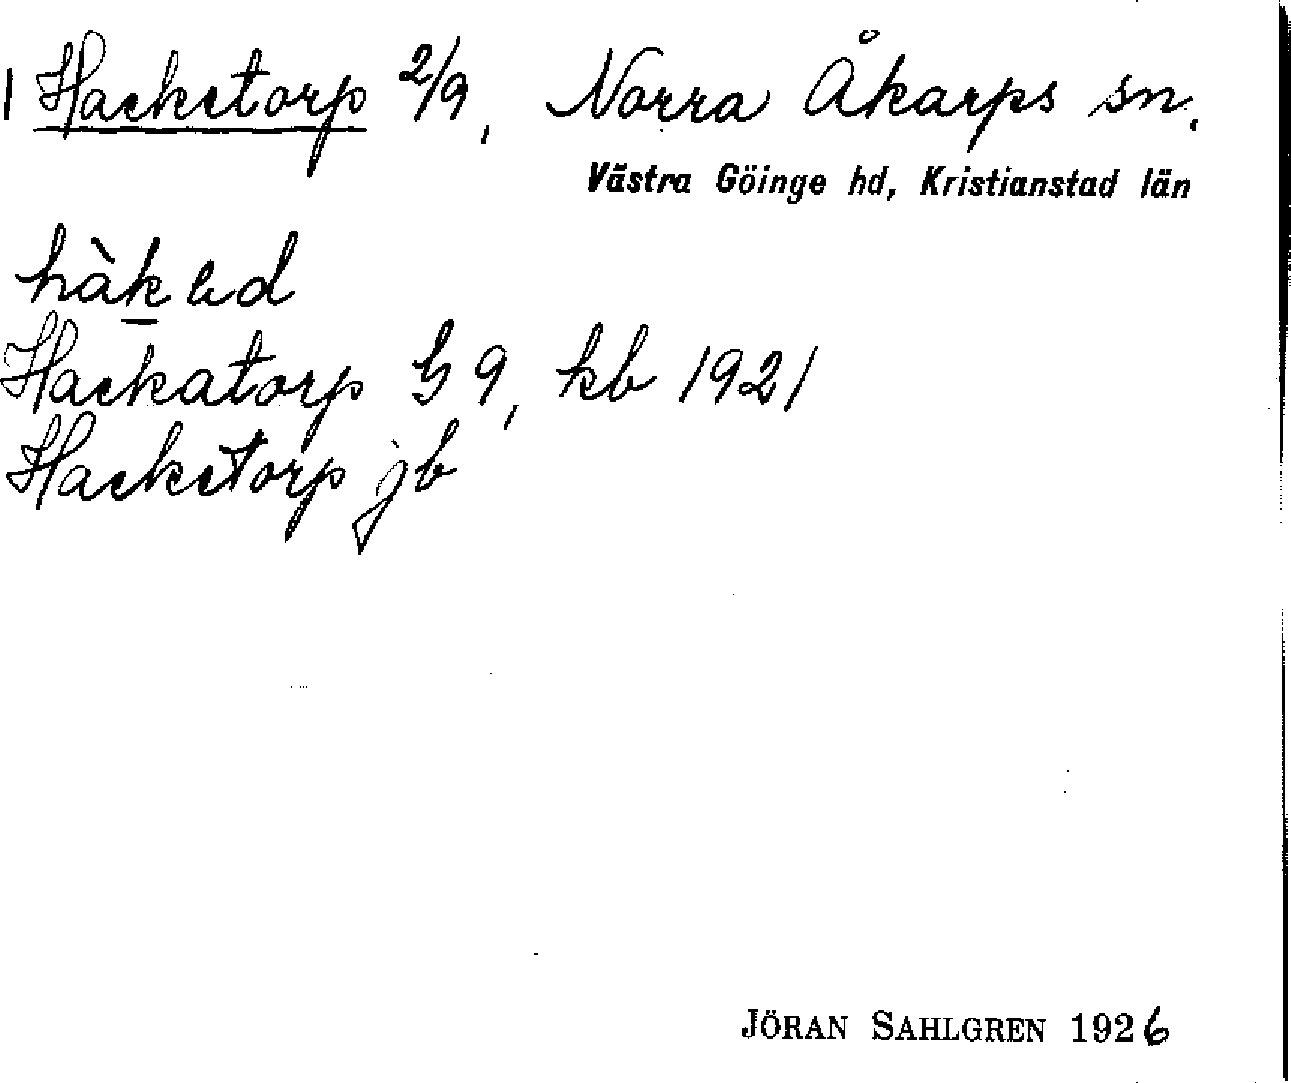 1 Hacketorp 2/9, Norra Åkarps sn.
Västra Göinge hd, Kristianstad län
Hackatorp G 9, kb 1921
Hacketorp jb
JÖRAN SAHLGREN 1926